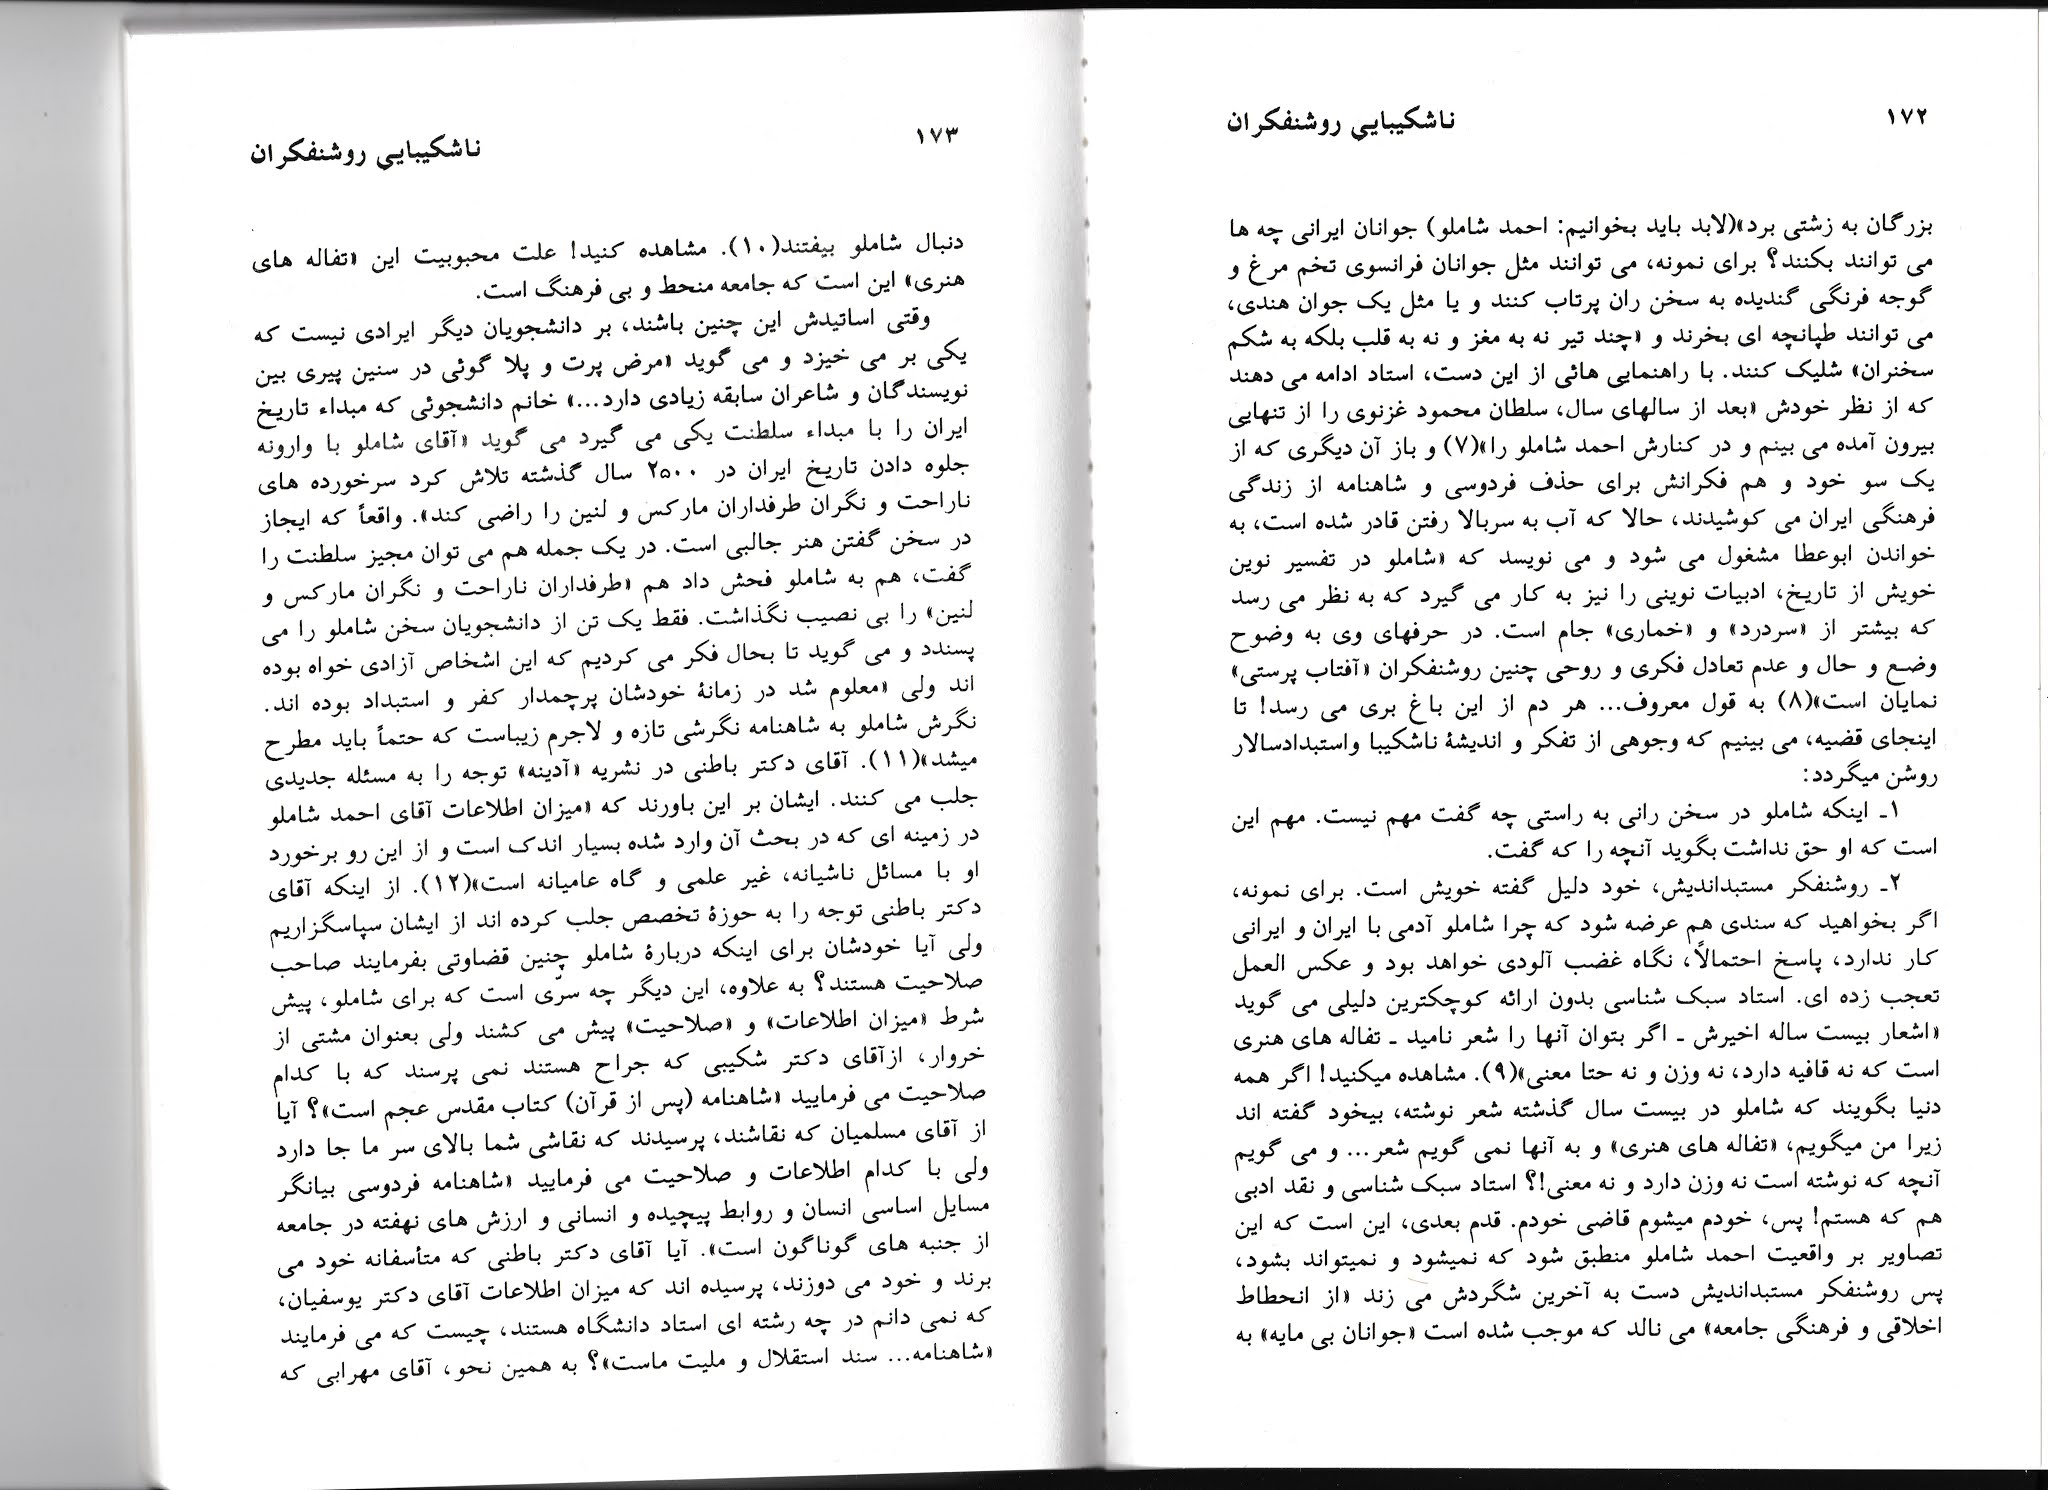 ۱۷۲
ناشکیبایی روشنفکران
بزرگان به زشتی برد»(لابد باید بخوانیم: احمد شاملو) جوانان ایرانی چه ها
می توانند بکنند؟ برای نمونه، می توانند مثل جوانان فرانسوی تخم مرغ و
گوجه فرنگی گندیده به سخن ران پرتاب کنند و یا مثل یک جوان هندی،
می توانند طپانچه ای بخرند و «چند تیر نه به مغز و نه به قلب بلکه به شکم
سخنران» شلیک کنند. با راهنمایی هائی از این دست، استاد ادامه می دهند
که از نظر خودش «بعد از سالهای سال، سلطان محمود غزنوی را از تنهایی
بیرون آمده می بینم و در کنارش احمد شاملو را»(۷) و باز آن دیگری که از
یک سو خود و هم فکرانش برای حذف فردوسی و شاهنامه از زندگی
فرهنگی ایران می کوشیدند، حالا که آب به سربالا رفتن قادر شده است، به
خواندن ابوعطا مشغول می شود و می نویسد که «شاملو در تفسیر نوین
خویش از تاریخ، ادبیات نوینی را نیز به کار می گیرد که به نظر می رسد
که بیشتر از «سردرد» و «خماری» جام است. در حرفهای وی به وضوح
وضع و حال و عدم تعادل فکری و روحی چنین روشنفکران «آفتاب پرستی»
نمایان است»(۸) به قول معروف... هر دم از این باغ بری می رسد! تا
اینجای قضیه، می بینیم که وجوهی از تفکر و اندیشهٔ ناشکیبا واستبدادسالار
روشن میگردد:
۱ـ اینکه شاملو در سخن رانی به راستی چه گفت مهم نیست. مهم این
است که او حق نداشت بگوید آنچه را که گفت.
۲ـ روشنفکر مستبداندیش، خود دلیل گفته خویش است. برای نمونه،
اگر بخواهید که سندی هم عرضه شود که چرا شاملو آدمی با ایران و ایرانی
کار ندارد، پاسخ احتمالاً، نگاه غضب آلودی خواهد بود و عکس العمل
تعجب زده ای. استاد سبک شناسی بدون ارائه کوچکترین دلیلی می گوید
«اشعار بیست ساله اخیرش ـ اگر بتوان آنها را شعر نامید ـ تفاله های هنری
است که نه قافیه دارد، نه وزن و نه حتا معنی»(۹). مشاهده میکنید! اگر همه
دنیا بگویند که شاملو در بیست سال گذشته شعر نوشته، بیخود گفته اند
زیرا من میگویم، «تفاله های هنری» و به آنها نمی گویم شعر... و می گویم
آنچه که نوشته است نه وزن دارد و نه معنی!؟ استاد سبک شناسی و نقد ادبی
هم که هستم! پس، خودم میشوم قاضی خودم. قدم بعدی، این است که این
تصاویر بر واقعیت احمد شاملو منطبق شود که نمیشود و نمیتواند بشود،
پس روشنفکر مستبداندیش دست به آخرین شگردش می زند «از انحطاط
اخلاقی و فرهنگی جامعه» می نالد که موجب شده است «جوانان بی مایه» به
۱۷۳
ناشکیبایی روشنفکران
دنبال شاملو بیفتند(۱۰). مشاهده کنید! علت محبوبیت این «تفاله های
هنری» این است که جامعه منحط و بی فرهنگ است.
وقتی اساتیدش این چنین باشند، بر دانشجویان دیگر ایرادی نیست که
یکی بر می خیزد و می گوید «مرض پرت و پلا گوئی در سنین پیری بین
نویسندگان و شاعران سابقه زیادی دارد...» خانم دانشجوئی که مبداء تاریخ
ایران را با مبداء سلطنت یکی می گیرد می گوید «آقای شاملو با وارونه
جلوه دادن تاریخ ایران در ۲۵۰۰ سال گذشته تلاش کرد سرخورده های
ناراحت و نگران طرفداران مارکس و لنین را راضی کند». واقعاً که ایجاز
در سخن گفتن هنر جالبی است. در یک جمله هم می توان مجیز سلطنت را
گفت، هم به شاملو فحش داد هم «طرفداران ناراحت و نگران مارکس و
لنین» را بی نصیب نگذاشت. فقط یک تن از دانشجویان سخن شاملو را می
پسندد و می گوید تا بحال فکر می کردیم که این اشخاص آزادی خواه بوده
اند ولی «معلوم شد در زمانهٔ خودشان پرچمدار کفر و استبداد بوده اند.
نگرش شاملو به شاهنامه نگرشی تازه و لاجرم زیباست که حتماً باید مطرح
میشد»(۱۱). آقای دکتر باطنی در نشریه «آدینه» توجه را به مسئله جدیدی
جلب می کنند. ایشان بر این باورند که «میزان اطلاعات آقای احمد شاملو
در زمینه ای که در بحث آن وارد شده بسیار اندک است و از این رو برخورد
او با مسائل ناشیانه، غیر علمی و گاه عامیانه است»(۱۲). از اینکه آقای
دکتر باطنی توجه را به حوزهٔ تخصص جلب کرده اند از ایشان سپاسگزاریم
ولی آیا خودشان برای اینکه دربارهٔ شاملو چنین قضاوتی بفرمایند صاحب
صلاحیت هستند؟ به علاوه، این دیگر چه سرّی است که برای شاملو، پیش
شرط «میزان اطلاعات» و «صلاحیت» پیش می کشند ولی بعنوان مشتی از
خروار، ازآقای دکتر شکیبی که جراح هستند نمی پرسند که با کدام
صلاحیت می فرمایید «شاهنامه (پس از قرآن) کتاب مقدس عجم است»؟ آیا
از آقای مسلمیان که نقاشند، پرسیدند که نقاشی شما بالای سر ما جا دارد
ولی با کدام اطلاعات و صلاحیت می فرمایید «شاهنامه فردوسی بیانگر
مسایل اساسی انسان و روابط پیچیده و انسانی و ارزش های نهفته در جامعه
از جنبه های گوناگون است». آیا آقای دکتر باطنی که متأسفانه خود می
برند و خود می دوزند، پرسیده اند که میزان اطلاعات آقای دکتر یوسفیان،
که نمی دانم در چه رشته ای استاد دانشگاه هستند، چیست که می فرمایند
«شاهنامه... سند استقلال و ملیت ماست»؟ به همین نحو، آقای مهرابی که